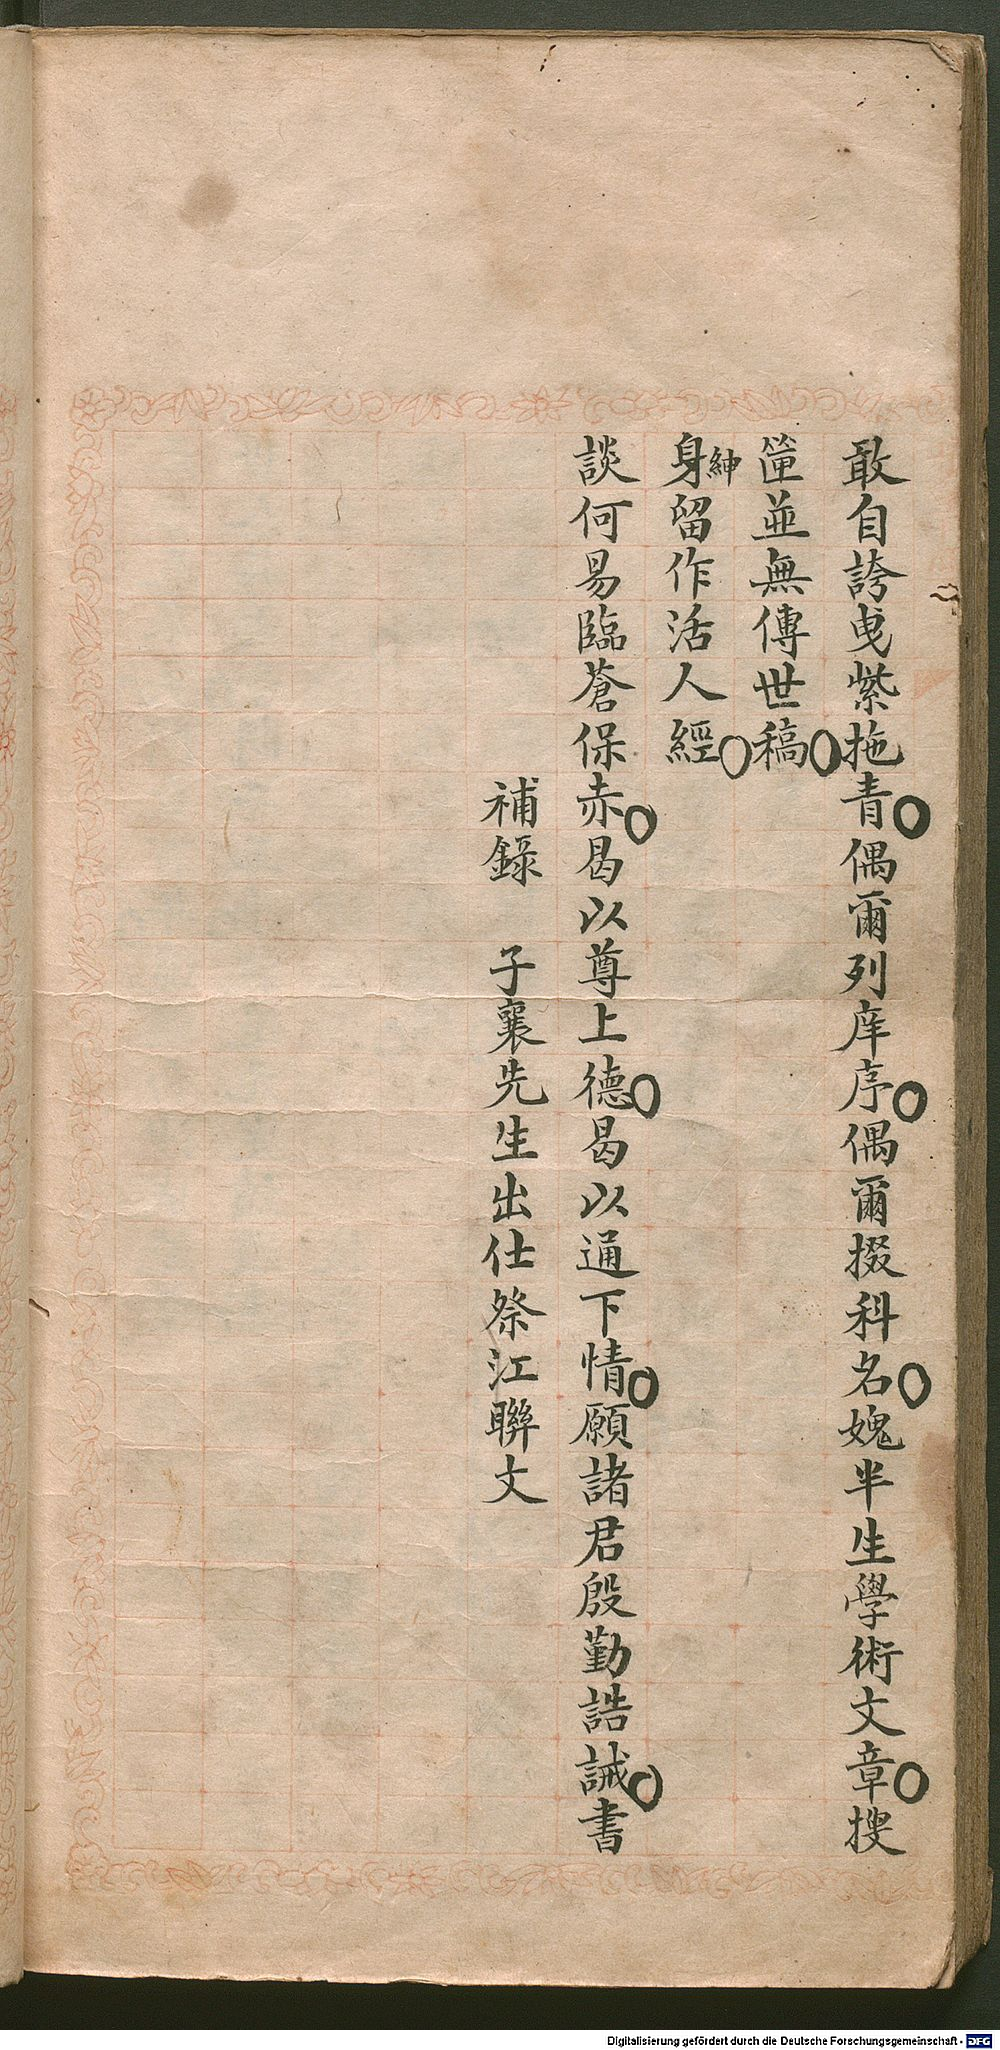 敢自誇曳紫拖青偶爾列庠序偶爾掇科名媿半生學術文章搜
篋並無傳世稿
談何易臨蒼保赤曷以尊上德曷以通下情願諸君殷勤誥誡書
紳
身留作活人經
補錄 子襄先生出仕祭江聯文
Digitalisierung gefördert durch die Deutsche Forschungsgemeinschaft - DFG